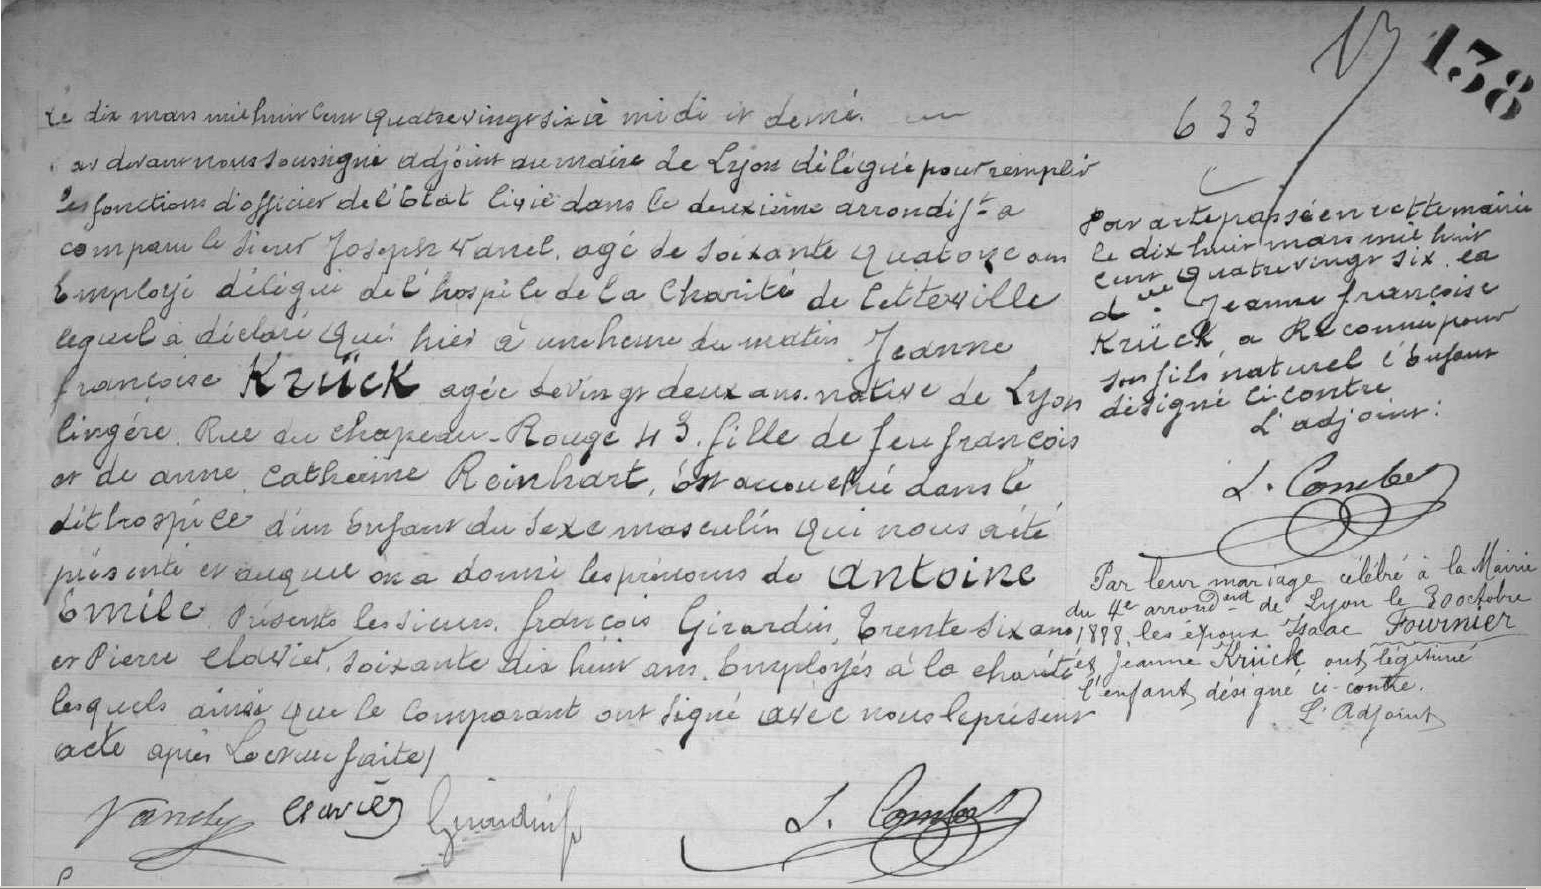 138
633
Le dix mars mil huit cent quatre vingt six à midi et demi.
Par devant nous soussigné adjoint au maire de Lyon délégué pour remplir
les fonctions d'officier de l'Etat Civil dans le deuxième arrondisst a
comparu le sieur Joseph Vanel, agé de soixante quatorze ans
Employé délégué de l'hospice de la Charité de Cette ville
lequel a déclaré que hier à une heure du matin Jeanne
françoise KRÜCK agée de vingt deux ans. native de Lyon
lingère. Rue du chapeau-Rouge 43. fille de feu françois
et de anne Catherine Reinhart, Est accouchée dans le
dit hospice d'un Enfant du Sexe masculin qui nous a été
présenté et auquel on a donné les prénoms de Antoine
Emile. Présents les sieurs. françois Girardin, Trente six ans
et Pierre Clavier, soixante dix huit ans. Employés à la charité
lesquels ainsi que le comparant ont signé avec nous le présent
acte après Lecture faite/
Clavier Girardin L. Combet
Par acte passé en cette mairie
le dix huit mars mil huit
cent quatre vingt six, la
dlle Jeanne françoise
Krück, a Reconnu pour
son fils naturel l'Enfant
désigné Ci contre
L'adjoint:
L. Combet
Par leur mariage célébré à la Mairie
du 4e arrond. de Lyon le 30 octobre
1888, les époux Isaac Fournier
et Jeanne Krück ont légitimé
l'enfant désigné ci-contre.
L'Adjoint